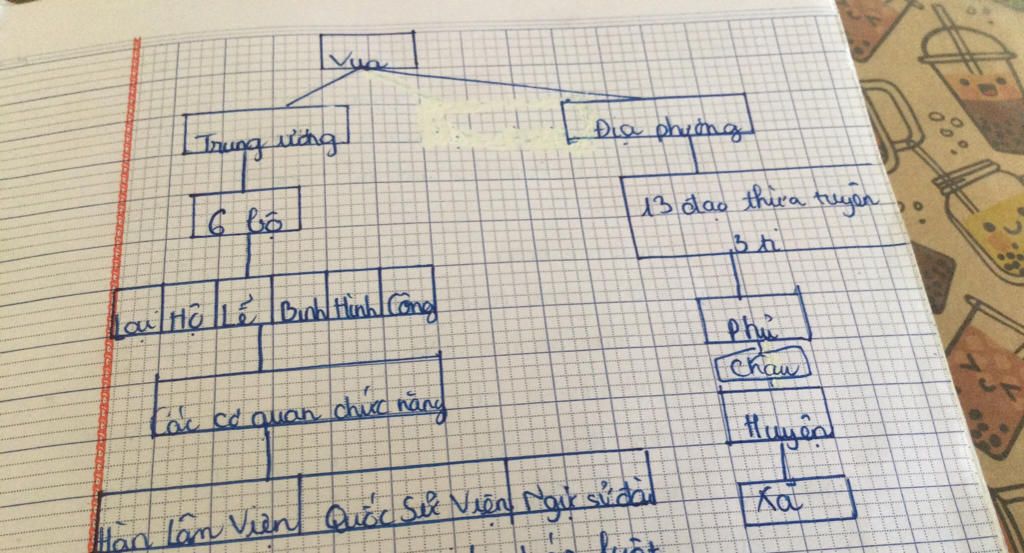 Vua
Trung ương
Địa phương
6 bộ
13 đạo thừa tuyên
3 ti
Lại Hộ Lễ Binh Hình Công
Phủ
Châu
Các cơ quan chức năng
Huyện
Hàn Lâm Viện Quốc Sử Viện Ngự sử đài
Xã